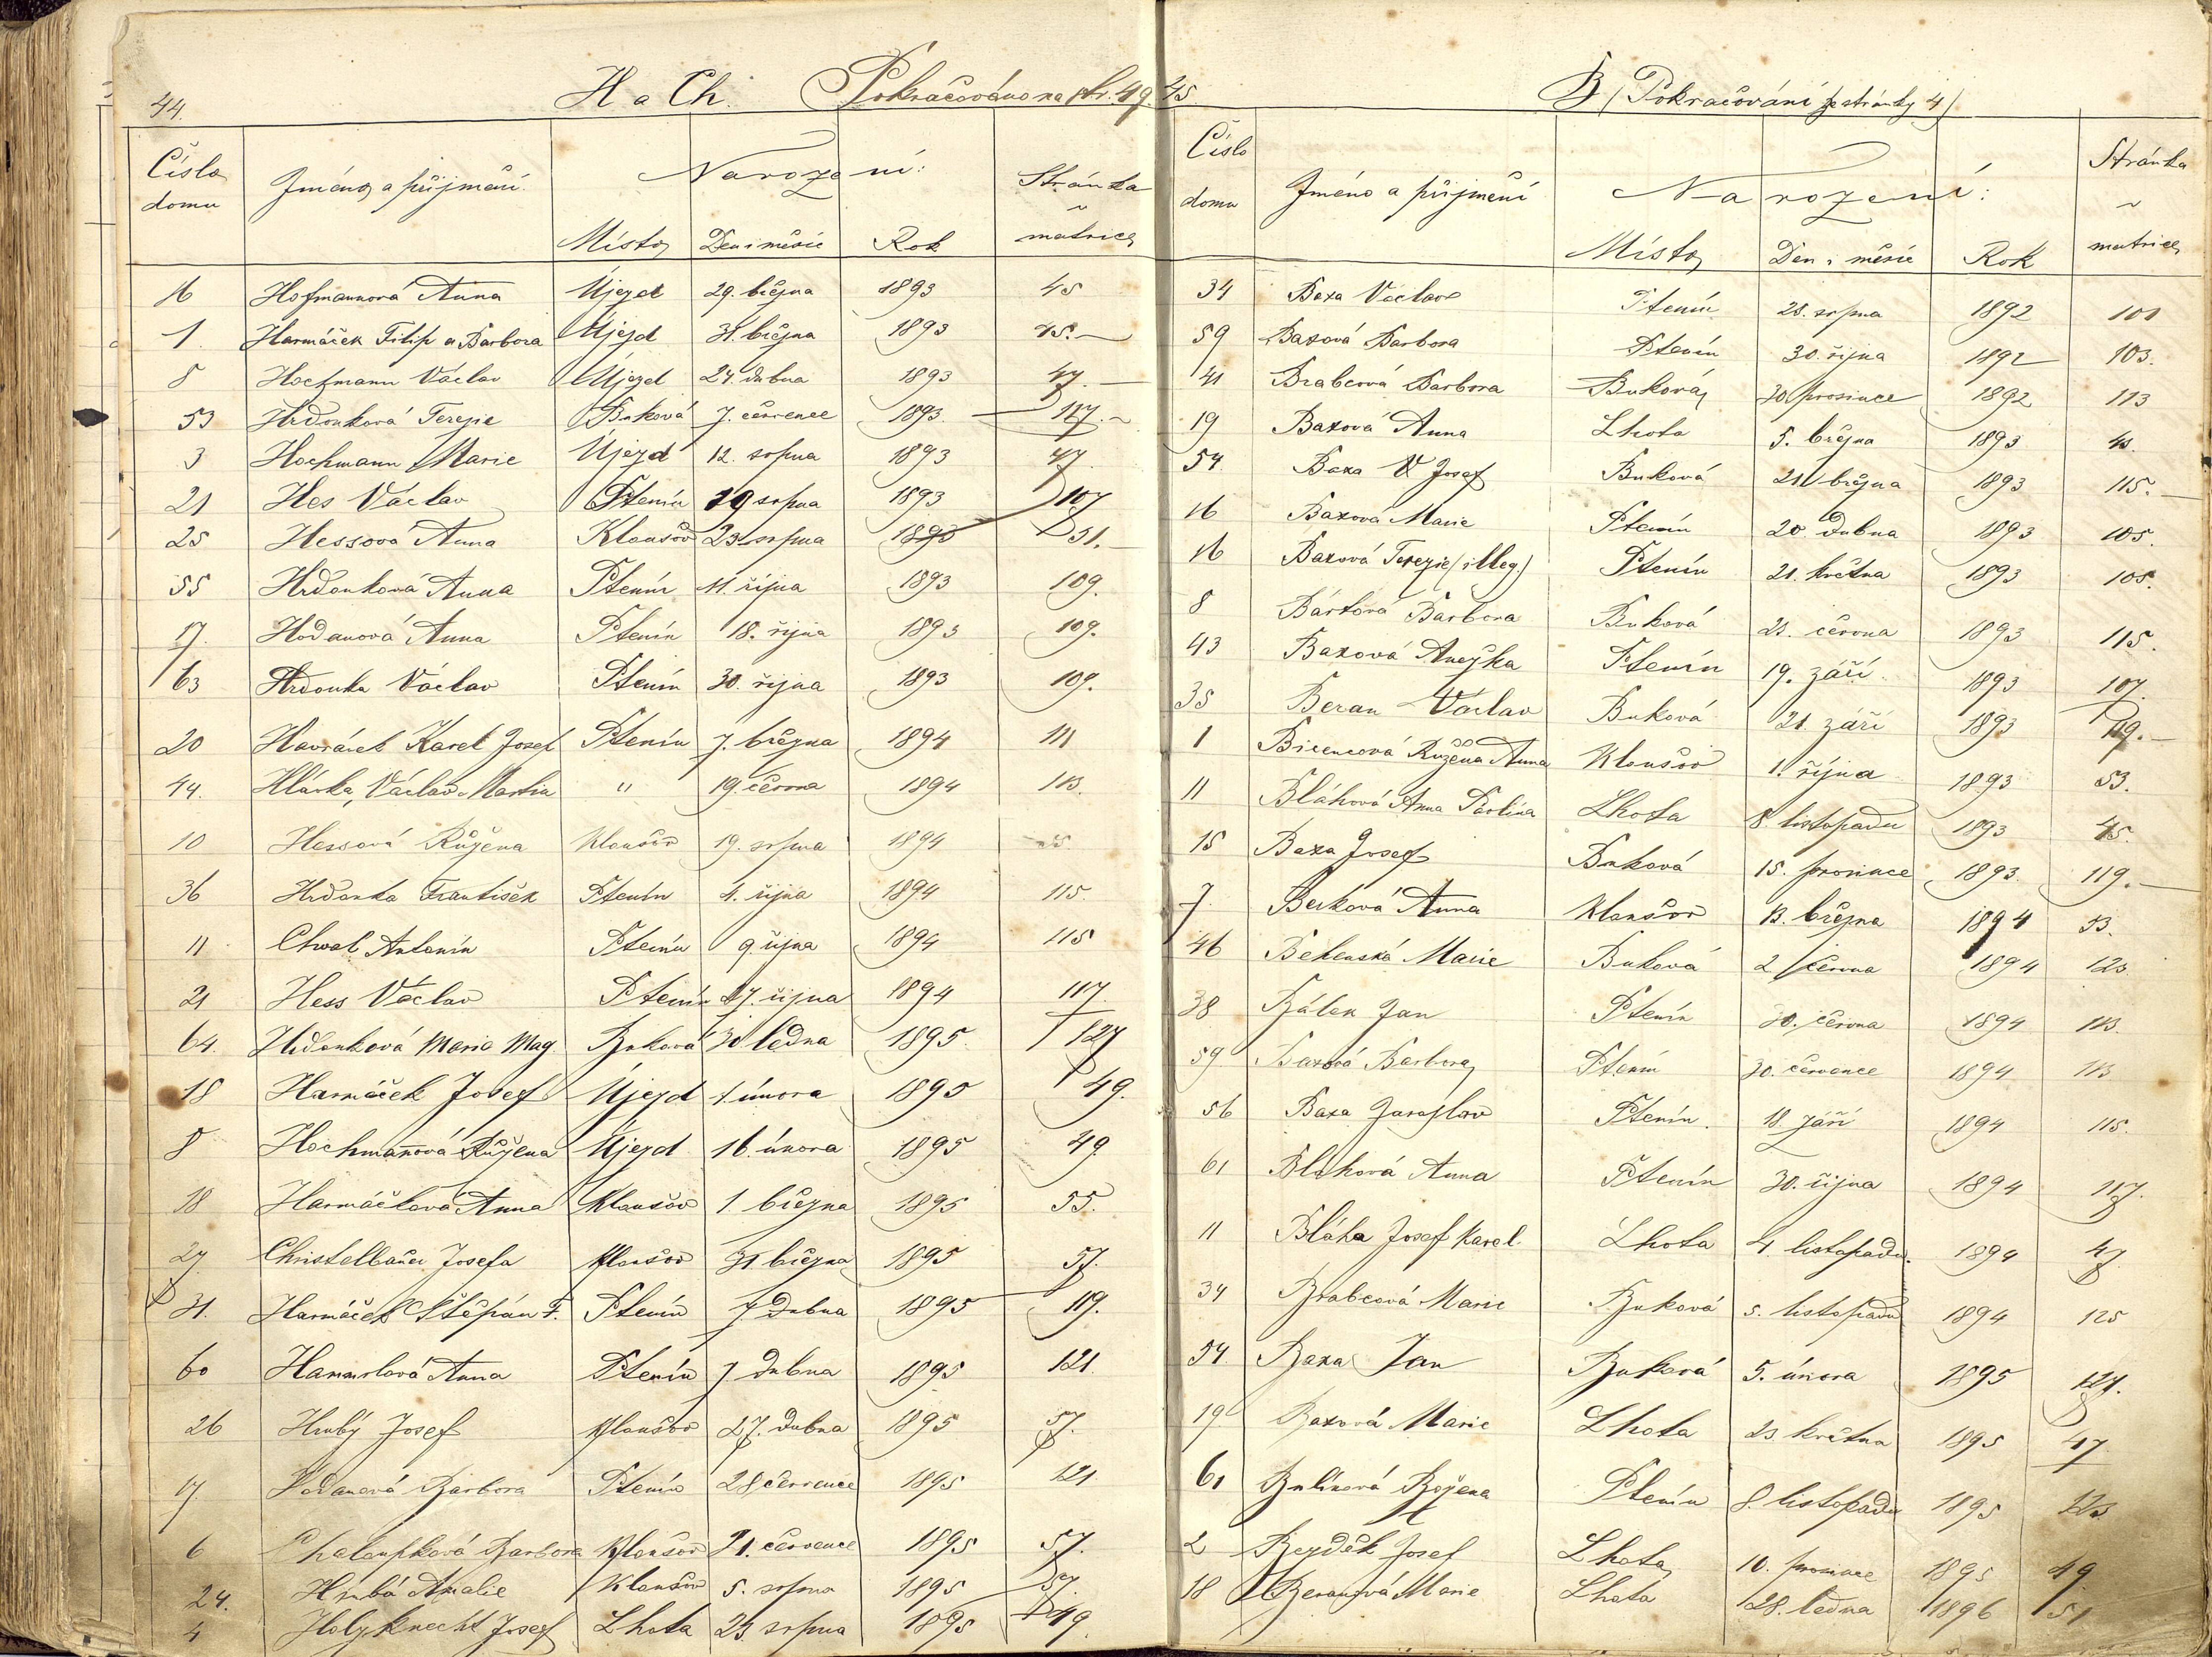 44.
H a Ch. Pokračováno na str. 49.
Číslo domu Jméno a příjmení. Narození: Stránka matrice
Místo Den i měsíc Rok
16 Hofmannová Anna Újezd 29. března 1893 45
1. Harmáček Filip a Barbora Újezd 31. března 1893 45.
8 Hochmann Václav Újezd 24. dubna 1893 47.
53 Hrdonková Terezie Buková 7. července 1893. 117.
3 Hochmann Marie Újezd 12. srpna 1893 47.
21 Hes Václav Ptenín 19 srpna 1893 107
25 Hessová Anna Kloušov 23. srpna 1893 51.
55 Hrdonková Anna Ptenín 11. října 1893 109.
17. Hodanová Anna Ptenín 18. října 1893 109.
63 Hrdonka Václav Ptenín 30. října 1893 109.
20 Havránek Karel Josef Ptenín 7. března 1894 111
44. Hlávka, Václav Martin " 19. června 1894 113.
10 Hessová Růžena Kloušov 19. srpna 1894 55
36 Hrdonka František Ptenín 4. října 1894 115.
11 Chval Antonín Ptenín 9. října 1894 115
21 Hess Václav Ptenín 27. října 1894 117.
64. Hrdonková Maria Mag. Buková 30 ledna 1895 127
18 Harmáček Josef Újezd 1. února 1895 49.
8 Hochmanová Růžena Újezd 16. února 1895 49
18 Harmáčková Anna Kloušov 1. března 1895 55.
27 Christelbauer Josefa Kloušov 31 března 1895 57.
31. Harmáček Štěpán F. Ptenín 7 dubna 1895 119.
60 Hammrlová Anna Ptenín 7 dubna 1895 121.
26 Hrubý Josef Kloušov 27. dubna 1895 57.
17. Hodanová Barbora Ptenín 28 července 1895 121.
6 Chaloupková Barbora Kloušov 21. července 1895 57.
24. Hrubá Amalie Kloušov 5. srpna 1895 57.
4 Holzknecht Josef Lhota 23. srpna 1895 49.
45.
B (Pokračování ze stránky 4)
Číslo domu Jméno a příjmení Narození: Stránka matrice
Místo Den i měsíc Rok
34 Baxa Václav Ptenín 28. srpna 1892 101
59 Baxová Barbora Ptenín 30. října 1892 103.
41 Brabcová Barbora Buková 30 prosince 1892 113
19 Baxová Anna Lhota 5. března 1893 43.
54 Baxa V. Josef Buková 21 března 1893 115.
16 Baxová Marie Ptenín 20 dubna 1893 105.
16 Baxová Terezie (illeg.) Ptenín 21. května 1893 105.
8 Bártová Barbora Buková 23. června 1893 115.
43 Baxová Anežka Ptenín 19. září. 1893 107.
35 Beran Václav Buková 21 září 1893 119.
1 Bicencová Růžena Anna Kloušov 1. října 1893 53.
11 Bláhová Anna Pavlína Lhota 8. listopadu 1893 45.
15 Baxa Josef Buková 15. prosince 1893. 119.
7. Berková Anna Kloušov 13. března 1894 53.
46 Behenská Marie Buková 2 června 1894 123
38 Bálek Jan Ptenín 30. června 1894 113.
59 Baxová Barbora Ptenín 30. července 1894 113
56 Baxa Jaroslav Ptenín. 18. září 1894 115.
61 Bláhová Anna Ptenín 30. října 1894 117.
11 Bláha Josef Karel. Lhota 4 listopadu. 1894 47
34 Brabcová Marie Buková 5. listopadu 1894 125
54. Baxa Jan Buková 5. února 1895 127.
19 Baxová Marie Lhota 23 května 1895 47
61 Bulínová Božena Ptenín 8. listopadu 1895 123
2 Bezděk Josef Lhota 10. prosince 1895 49
18 Beranová Marie Lhota 28. ledna 1896 51